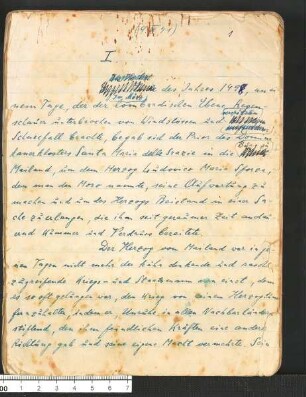 I
des Jahres 1498, an ei-
nem Tage, der der lombardischen Ebene Regen-
schauer unterbrochen von Windstössen und
Schneefall brachte, begab sich der Prior des Domini-
kanerklosters Santa Maria delle Grazie in die
Mailand, um dem Herzog Ludovico Maria Sforza,
den man den Moro nannte, seine Aufwartung zu
machen und um des Herzogs Beistand in einer Sa-
che zu erlangen, die ihm seit geraumer Zeit
und Kummer und Verdruss bereitete.
Der Herzog von Mailand war in je-
nen Tagen nicht mehr der kühn denkende und rasch
zugreifende Kriegs- und Staatsmann von einst, dem
es so oft gelungen war, den Krieg von seinem Herzogtum
fernzuhalten, indem er Unruhe in den Nachbarländern
stiftend, den ihm feindlichen Kräften eine andere
Richtung gab und seine eigene Macht vermehrte. Sein
0 1 2 3 4 5 6 7